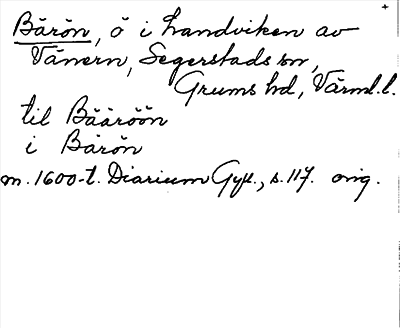 Bärön, ö i handviken av
Vänern, Segerstads sn,
Grums hd, Värml. l.
til Bääröön
i Bärön
m. 1600-t. Diarium Gyll., s. 117. orig.